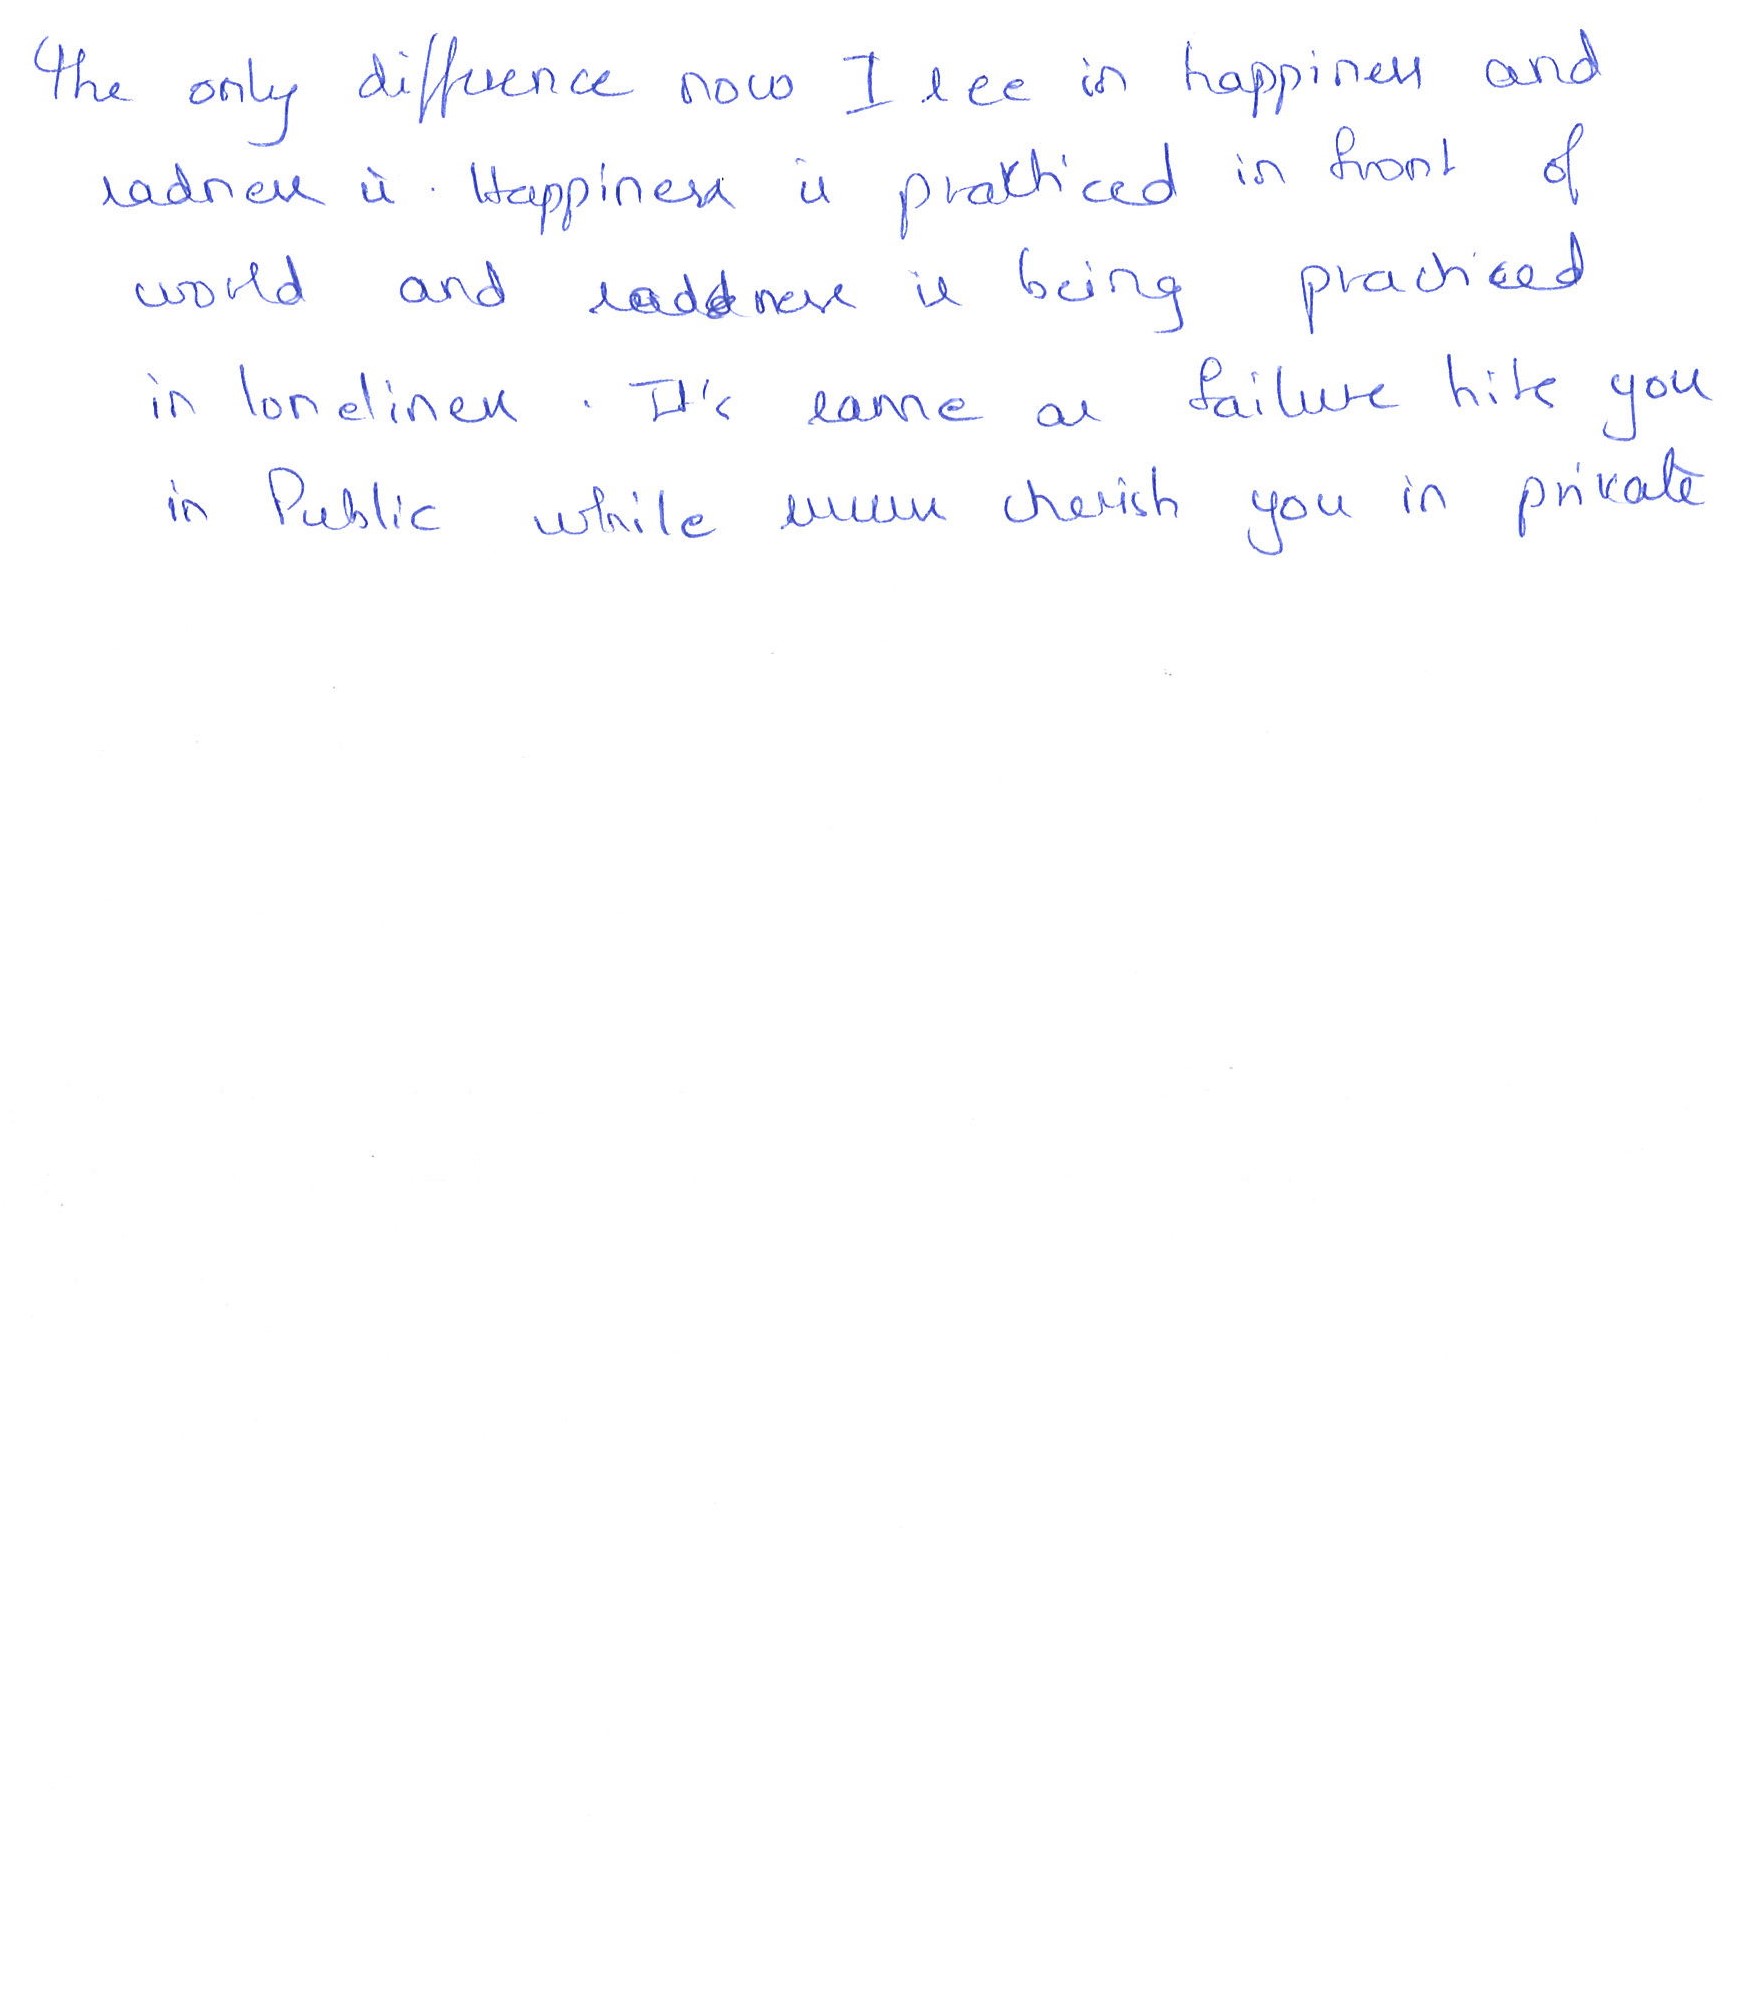 The only difference now I see in happiness and
sadness is. Happiness is practiced in front of
world and sadness is being practiced
in loneliness. It's same as failure hits you
in Public while success cherish you in private